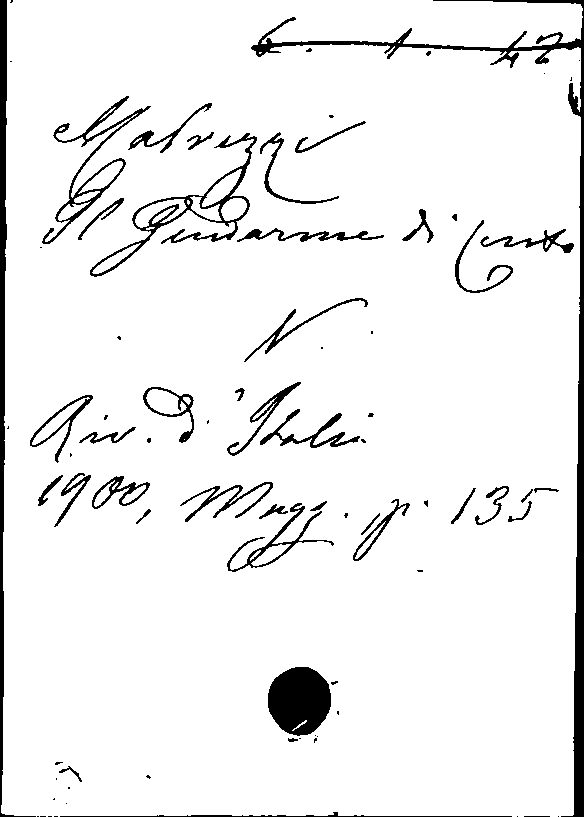 6. 1. 42
Malvezzi
Il Gendarme di Cento
N.
Riv. d'Italia
1900, Magg. p. 135